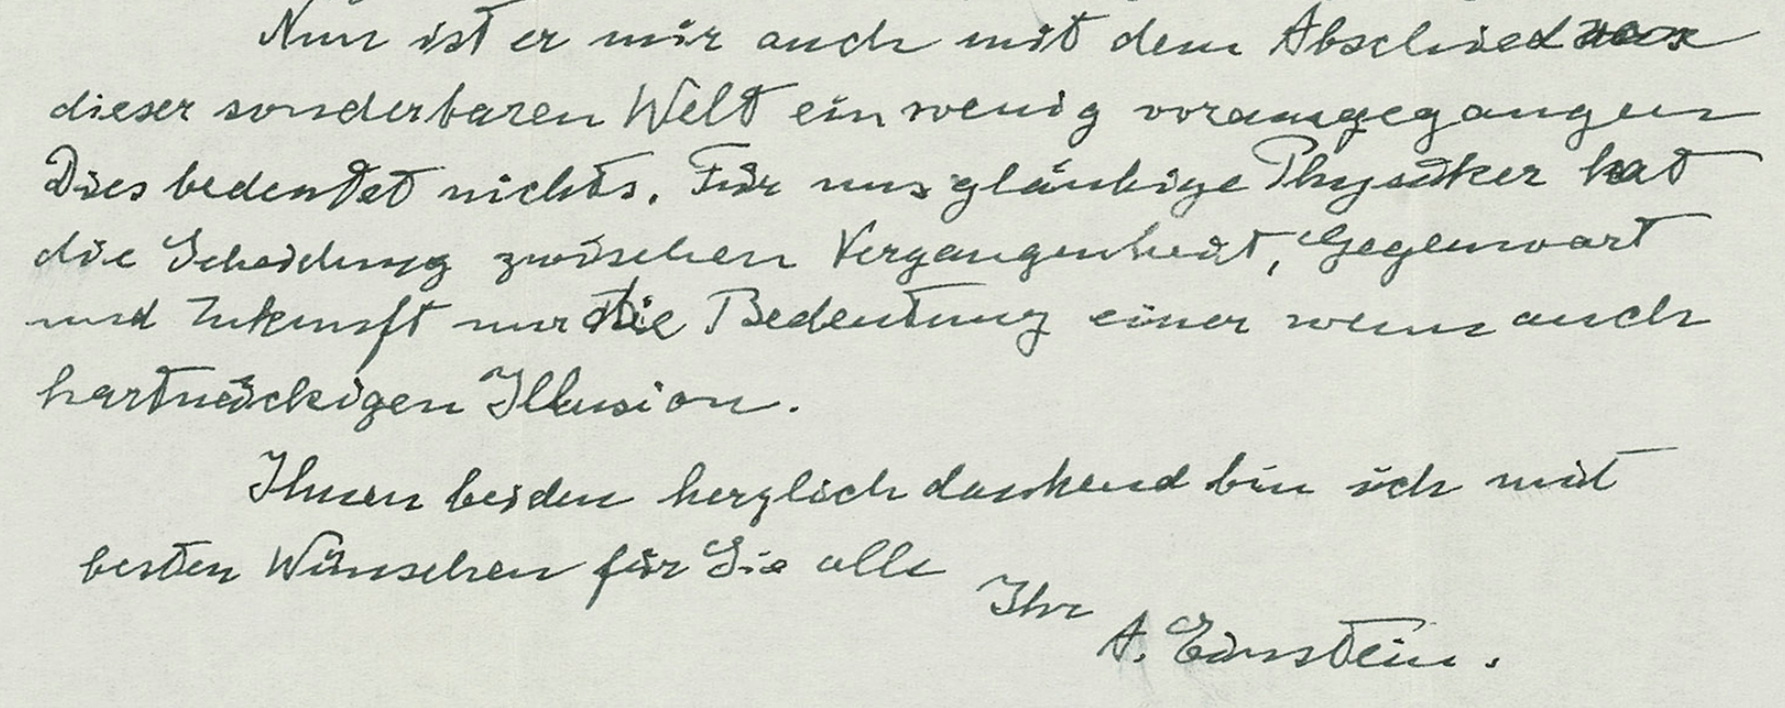 Nun ist er mir auch mit dem Abschied von
dieser sonderbaren Welt ein wenig vorangegangen
Dies bedeutet nichts. Für uns gläubige Physiker hat
die Scheidung zwischen Vergangenheit, Gegenwart
und Zukunft nur die Bedeutung einer wenn auch
hartnäckigen Illusion.
Ihnen beiden herzlich dankend bin ich mit
besten Wünschen für Sie alle
Ihr
A. Einstein.